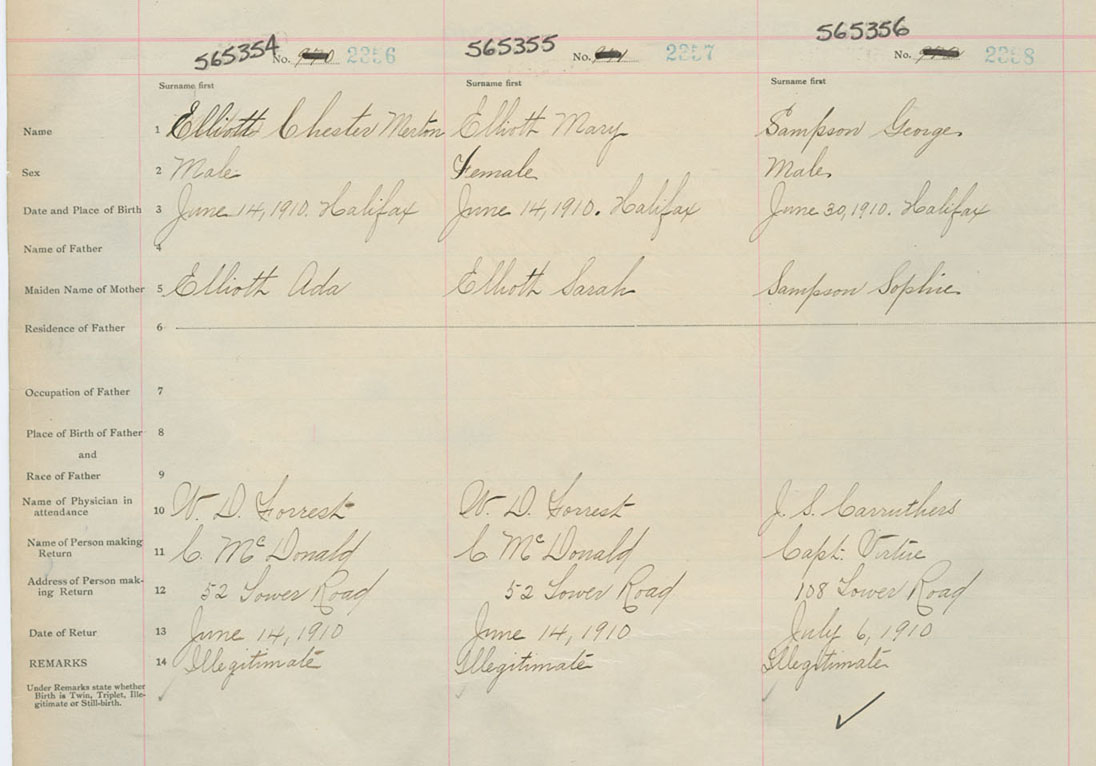 565354 No. 2256 565355 No. 2257 565356 No. 2258
Surname first Surname first Surname first
Name 1 Elliott Chester Merton Elliott Mary Sampson George
Sex 2 Male Female Male
Date and Place of Birth 3 June 14, 1910. Halifax June 14, 1910. Halifax June 30, 1910. Halifax
Name of Father 4
Maiden Name of Mother 5 Elliott Ada Elliott Sarah Sampson Sophie
Residence of Father 6
Occupation of Father 7
Place of Birth of Father 8
and
Race of Father 9
Name of Physician in
attendance 10 W. D. Forrest W. D. Forrest J. S. Carruthers
Name of Person making
Return 11 C. McDonald C. McDonald Capt. Virtue
Address of Person mak-
ing Return 12 52 Lower Road 52 Lower Road 108 Lower Road
Date of Retur 13 June 14, 1910 June 14, 1910 July 6, 1910
REMARKS 14 Illegitimate Illegitimate Illegitimate
Under Remarks state whether
Birth is Twin, Triplet, Ille-
gitimate or Still-birth.